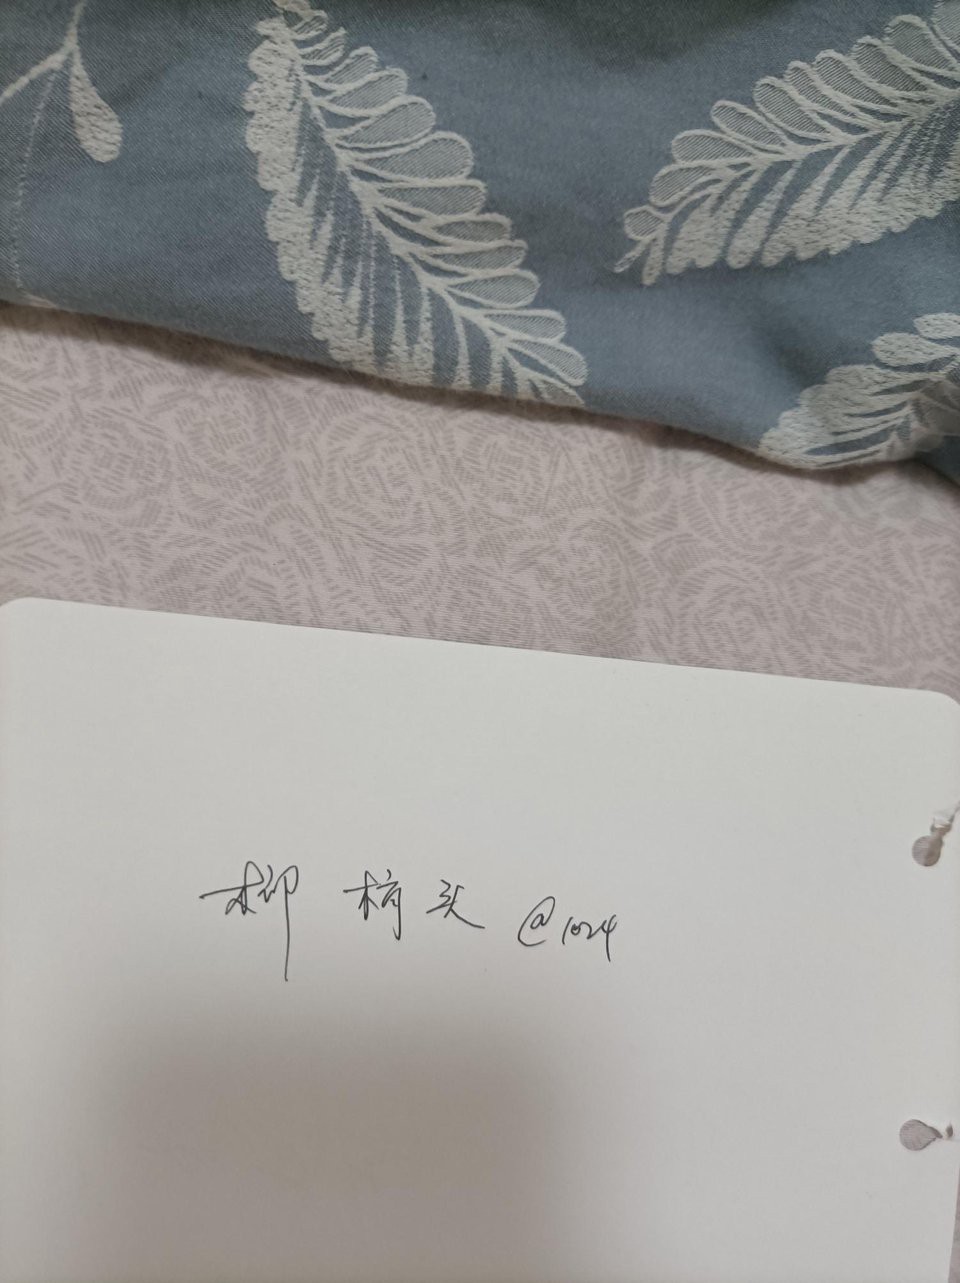 柳梢头@1024